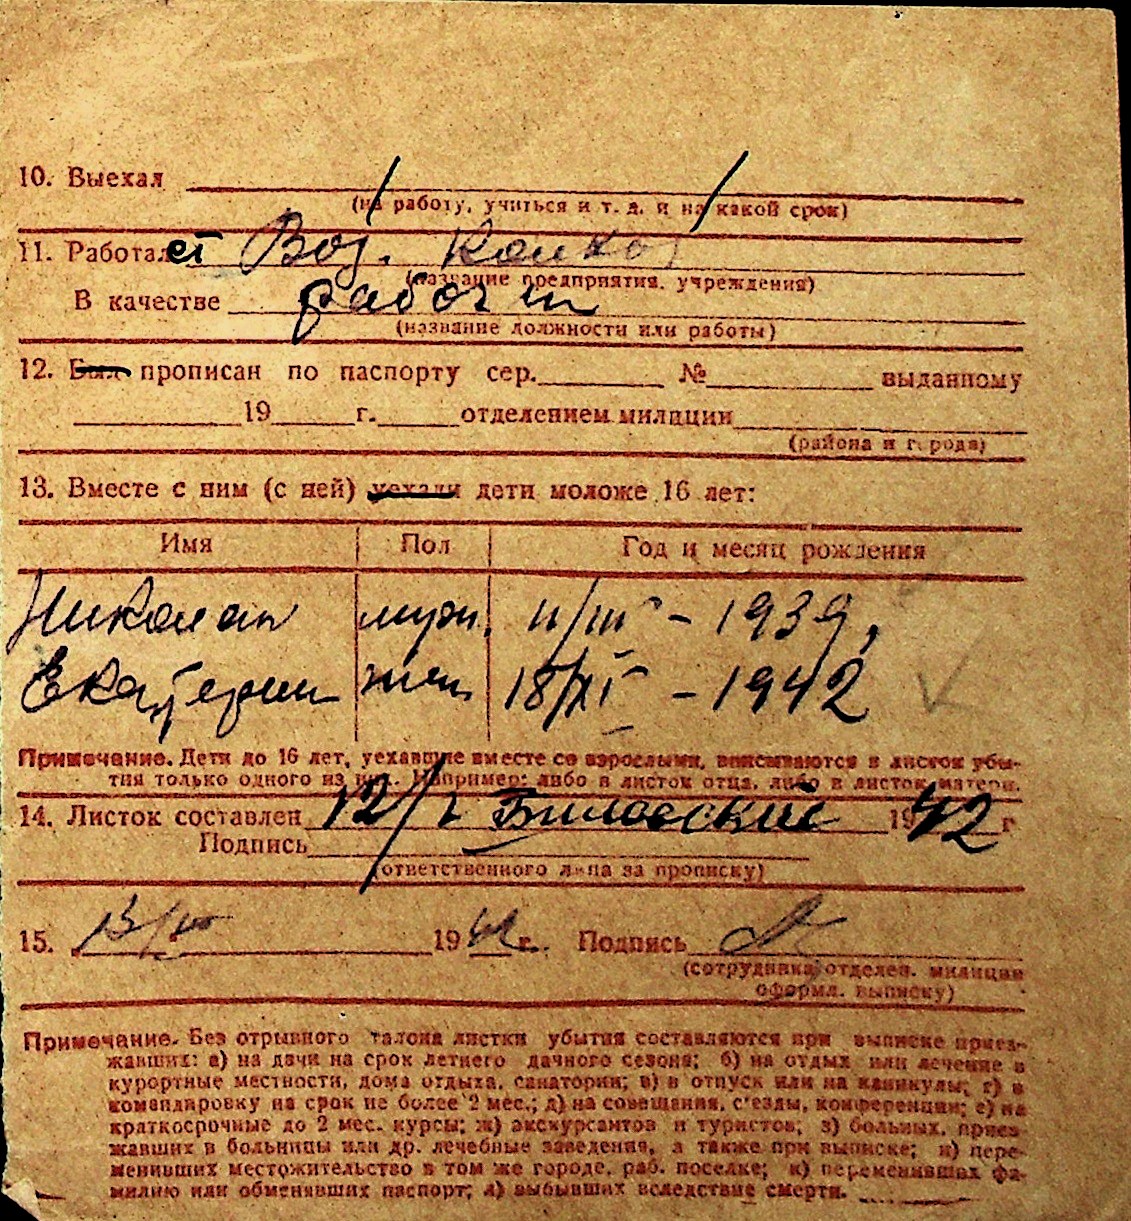 10. Выехал
(на работу, учиться и т. д. и на какой срок)
11. Работает Воз.
(название предприятия, учреждения)
В качестве рабочий
(название должности или работы)
12. Был прописан по паспорту сер. № выданному
19 г. отделением милиции
(района и города)
13. Вместе с ним (с ней) уехали дети моложе 16 лет:
Имя Пол Год и месяц рождения
Николай муж. 11/III - 1939,
Екатерин жен. 18/XI - 1942
Примечание. Дети до 16 лет, уехавшие вместе со взрослыми, вписываются в листок убы-
тия только одного из них. Например: либо в листок отца, либо в листок матери.
14. Листок составлен 12/ 1942 г
Подпись
(ответственного лица за прописку)
15. 13/III 19 г. Подпись
(сотрудника отделен. милиции
оформл. выписку)
Примечание. Без отрывного талона листки убытия составляются при выписке приез-
жавших: а) на дачи на срок летнего дачного сезона; б) на отдых или лечение в
курортные местности, дома отдыха, санатории; в) в отпуск или на каникулы; г) в
командировку на срок не более 2 мес.; д) на совещания, с'езды, конференции; е) на
краткосрочные до 2 мес. курсы; ж) экскурсантов и туристов; з) больных, приез-
жавших в больницы или др. лечебные заведения, а также при выписке; и) пере-
менивших местожительство в том же городе, раб. поселке; к) переменивших фа-
милию или обменявших паспорт; л) выбывших вследствие смерти.